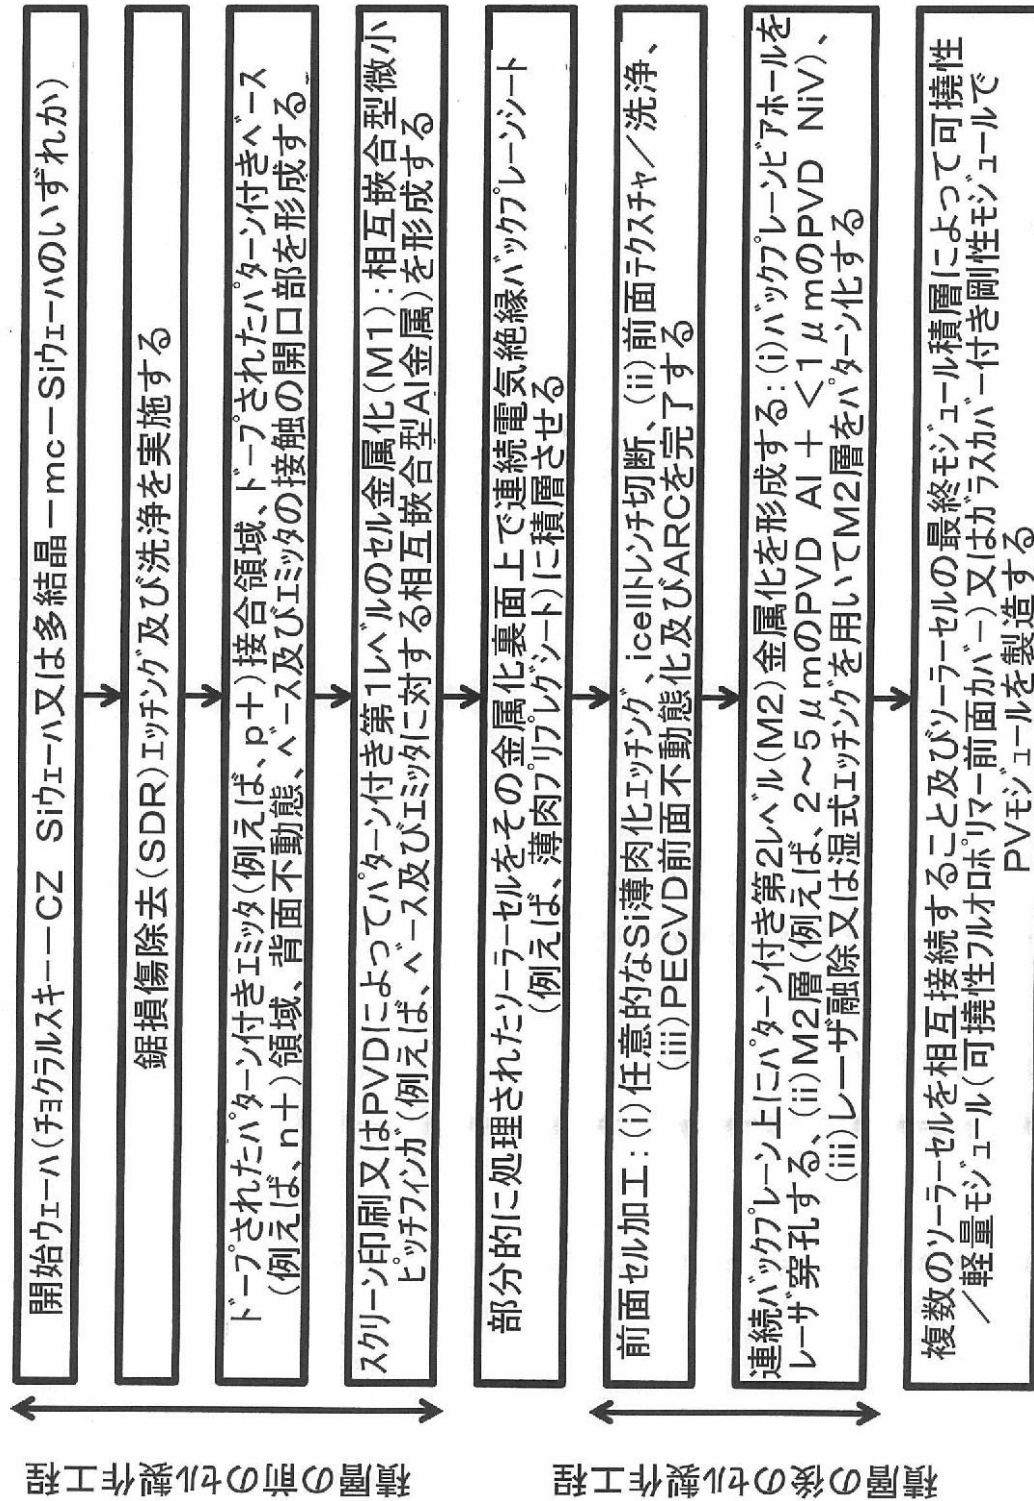 開始ウェーハ(チョクラルスキーーCZ Siウェーハ又は多結晶ーmcーSiウェーハのいずれか)
鋸損傷除去(SDR)エッチング及び洗浄を実施する
ドープされたパターン付きエミッタ(例えば、p+)接合領域、ドープされたパターン付きベース
(例えば、n+)領域、背面不動態、ベース及びエミッタの接触の開口部を形成する
スクリーン印刷又はPVDによってパターン付き第1レベルのセル金属化(M1):相互嵌合型微小
ピッチフィンガ(例えば、ベース及びエミッタに対する相互嵌合型Al金属)を形成する
部分的に処理されたソーラーセルをその金属化裏面上で連続電気絶縁バックプレーンシート
(例えば、薄肉プリプレグシート)に積層させる
前面セル加工:(i)任意的なSi薄肉化エッチング、icellトレンチ切断、(ii)前面テクスチャ/洗浄、
(iii)PECVD前面不動態化及びARCを完了する
連続バックプレーン上にパターン付き第2レベル(M2)金属化を形成する:(i)バックプレーンビアホールを
レーザ穿孔する、(ii)M2層(例えば、2~5μmのPVD Al + <1μmのPVD NiV)、
(iii)レーザ融除又は湿式エッチングを用いてM2層をパターン化する
複数のソーラーセルを相互接続すること及びソーラーセルの最終モジュール積層によって可撓性
/軽量モジュール(可撓性フルオロポリマー前面カバー)又はガラスカバー付き剛性モジュールで
PVモジュールを製造する
積層の前のセル製作工程
積層の後のセル製作工程